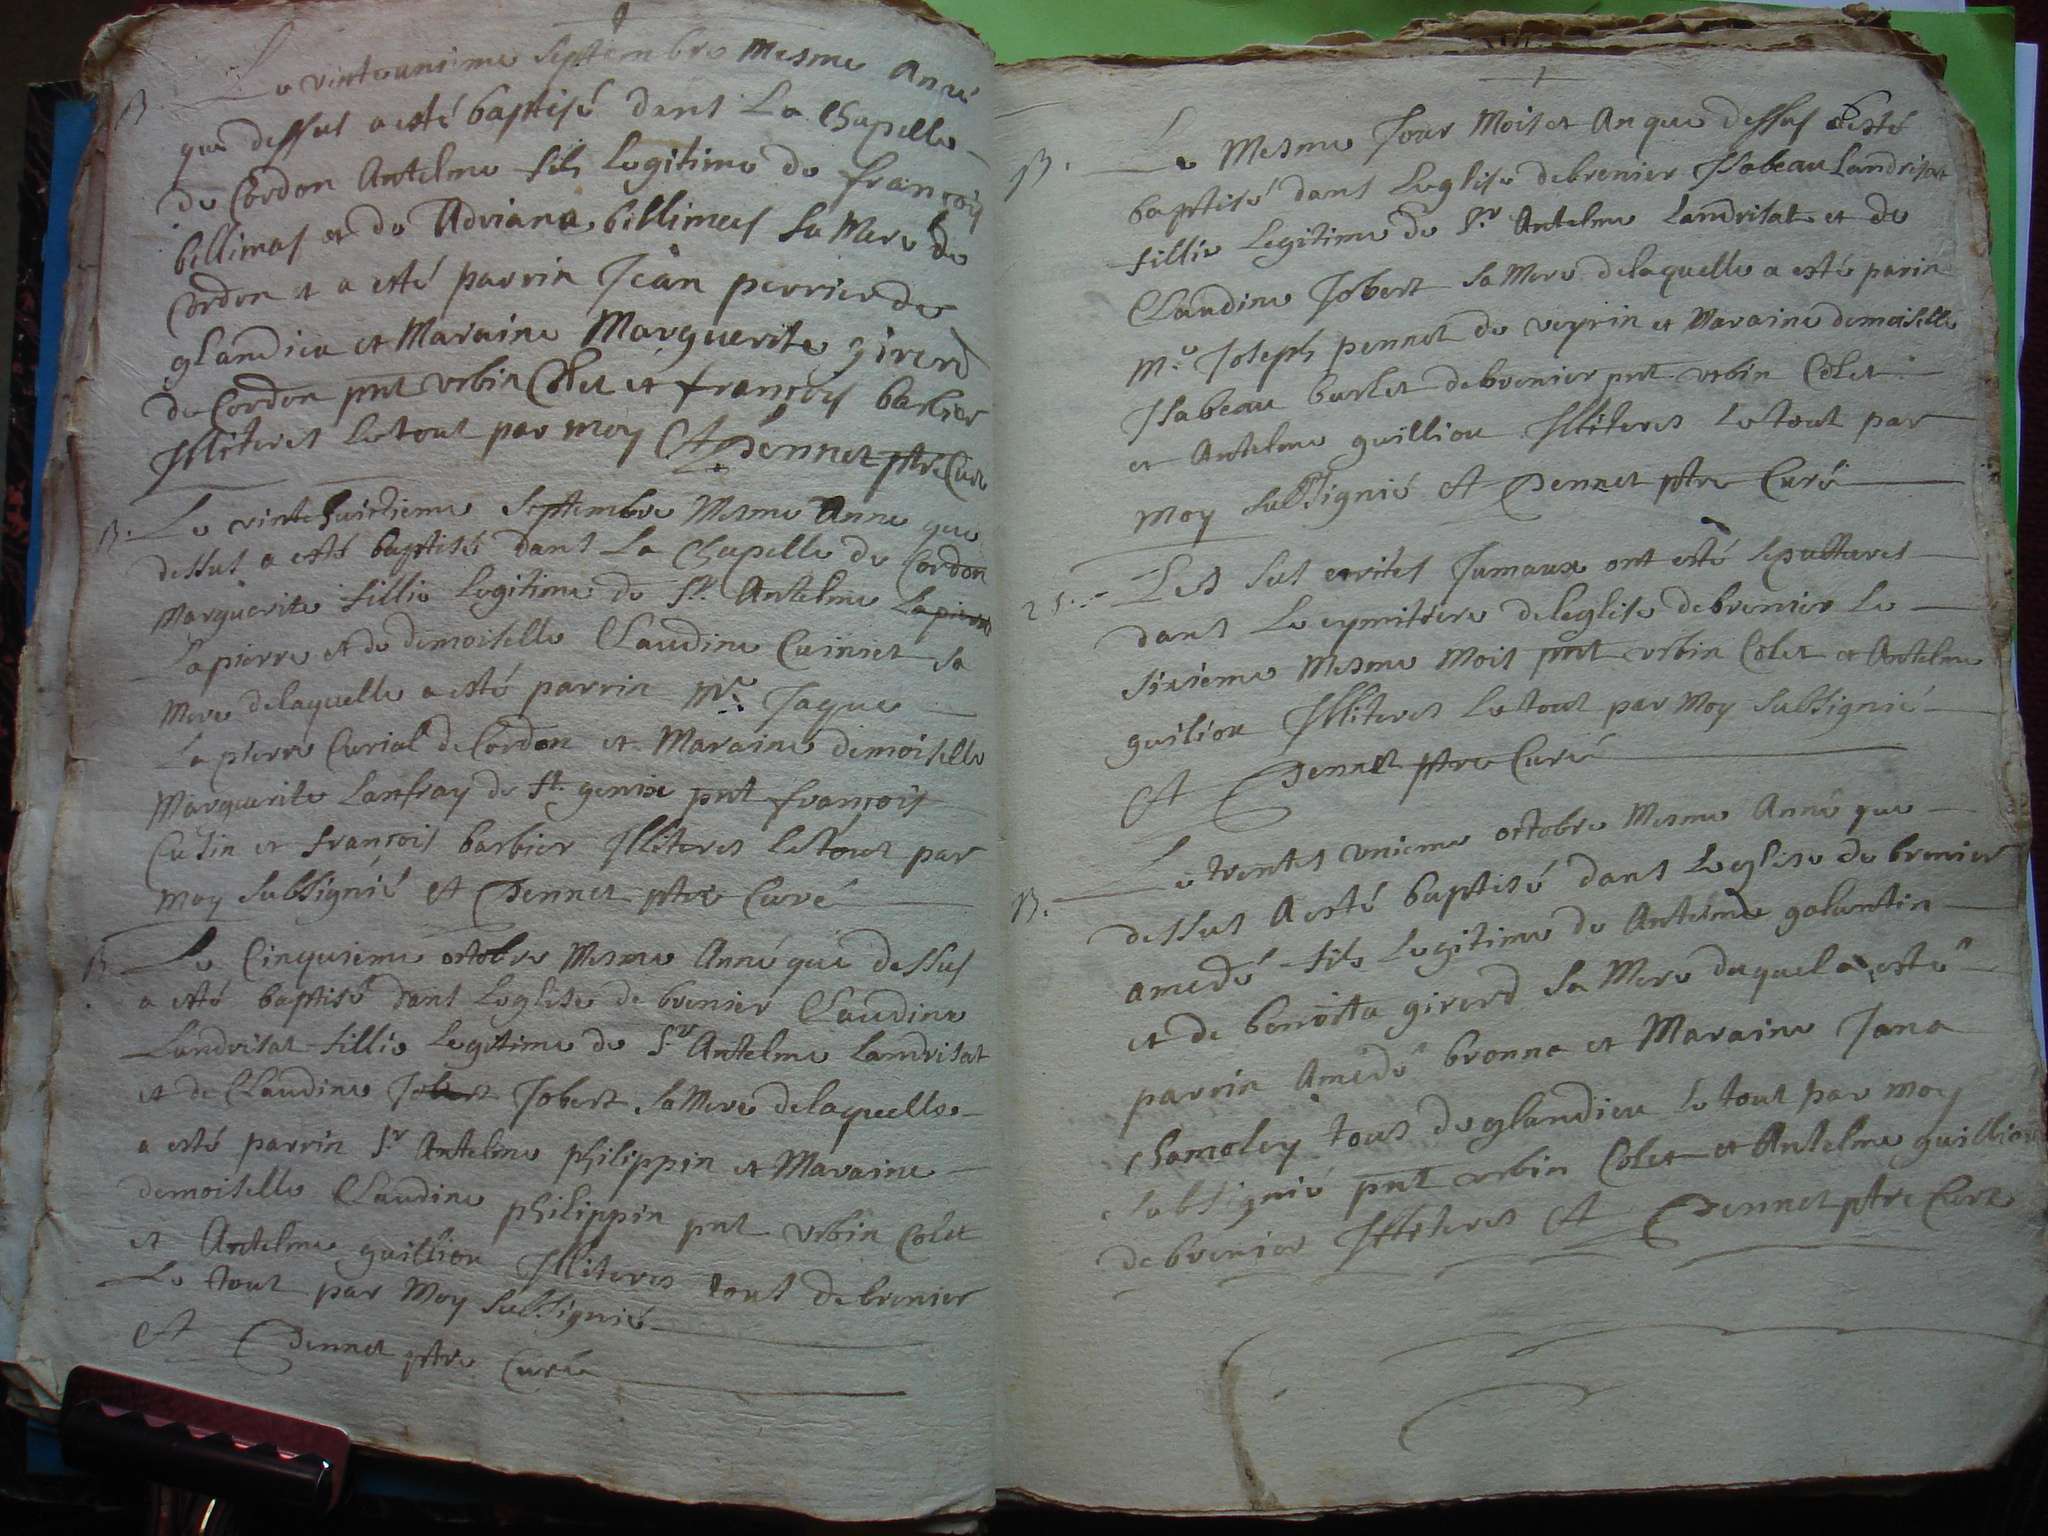 B. Le vinteunieme septembre mesme anné
que dessus a esté baptisé dans La Chapelle
de Cordon Antelme fils legitime de françois
billimas et de Adriana billimas sa Mere de
Cordon et a esté parrin Jean perrier de
glandieu et Maraine Marguerite girerd
de Cordon pnt Urbin Colet et françois barbier
Illiteres le tout par moy A Pennet ptre Curé
B. Le vintehuictieme septembre Mesme Anne que
dessus a esté baptisé dans La Chapelle de Cordon
Marguerite fillie legitime de Sr. Antelme Lapierre
Lapierre et de demoiselle Claudine Cuiniet sa
Mere delaquelle a esté parrin Mre. Jaque
Lapierre Curial de Cordon et Maraine demoiselle
Marguerite Lanfray de St. genix pnt françois
Cusin et françois barbier Illiteres le tout par
moy subsignié A Pennet ptre Curé
B. Le Cinquieme octobre Mesme Anné que dessus
a esté baptisé dans Leglise de brenier Claudine
Landrisat fillie Legitime de Sr Antelme Landrisat
et de Claudine Jobert Jobert sa Mere delaquelle
a esté parrin Sr Antelme philippin et Maraine
demoiselle Claudine philippin pnt Urbin Colet
et Antelme guilliou Illiteres tous de brenier
Le tout par Moy subsignié
A Pennet ptre Curé
B. Le Mesme Jour Mois et An que dessus a esté
baptisé dans Leglise de brenier Isabeau Landrisat
fillie Legitime de Sr Antelme Landrisat et de
Claudine Jobert sa Mere delaquelle a esté parin
Me. Joseph pennet de veyrin et Maraine demoiselle
Isabeau burlet de brenier pnt Urbin Colet
et Antelme guilliou Illiteres Le tout par
moy subsignié A Pennet ptre Curé
2 s. Les sus ecrites Jumaux ont esté sepultures
dans Le cymittere de leglise de brenier Le
sixieme Mesme Mois pnt Urbin Colet et Antelme
guiliou Illiteres Le tout par Moy subsignié
A Pennet ptre Curé
B. Le trentes unieme octobre Mesme Anné que
dessus A esté baptisé dans Leglise de brenier
amedé fils Legitime de Antelme galantin
et de benoita girerd sa Mere duquel a esté
parrin Amedé bronna et Maraine Jana
Chamoley tous de glandieu Le tout par moy
subsignié pnt Urbin Colet et Antelme guilliou
de brenier Illiteres A Pennet ptre Curé